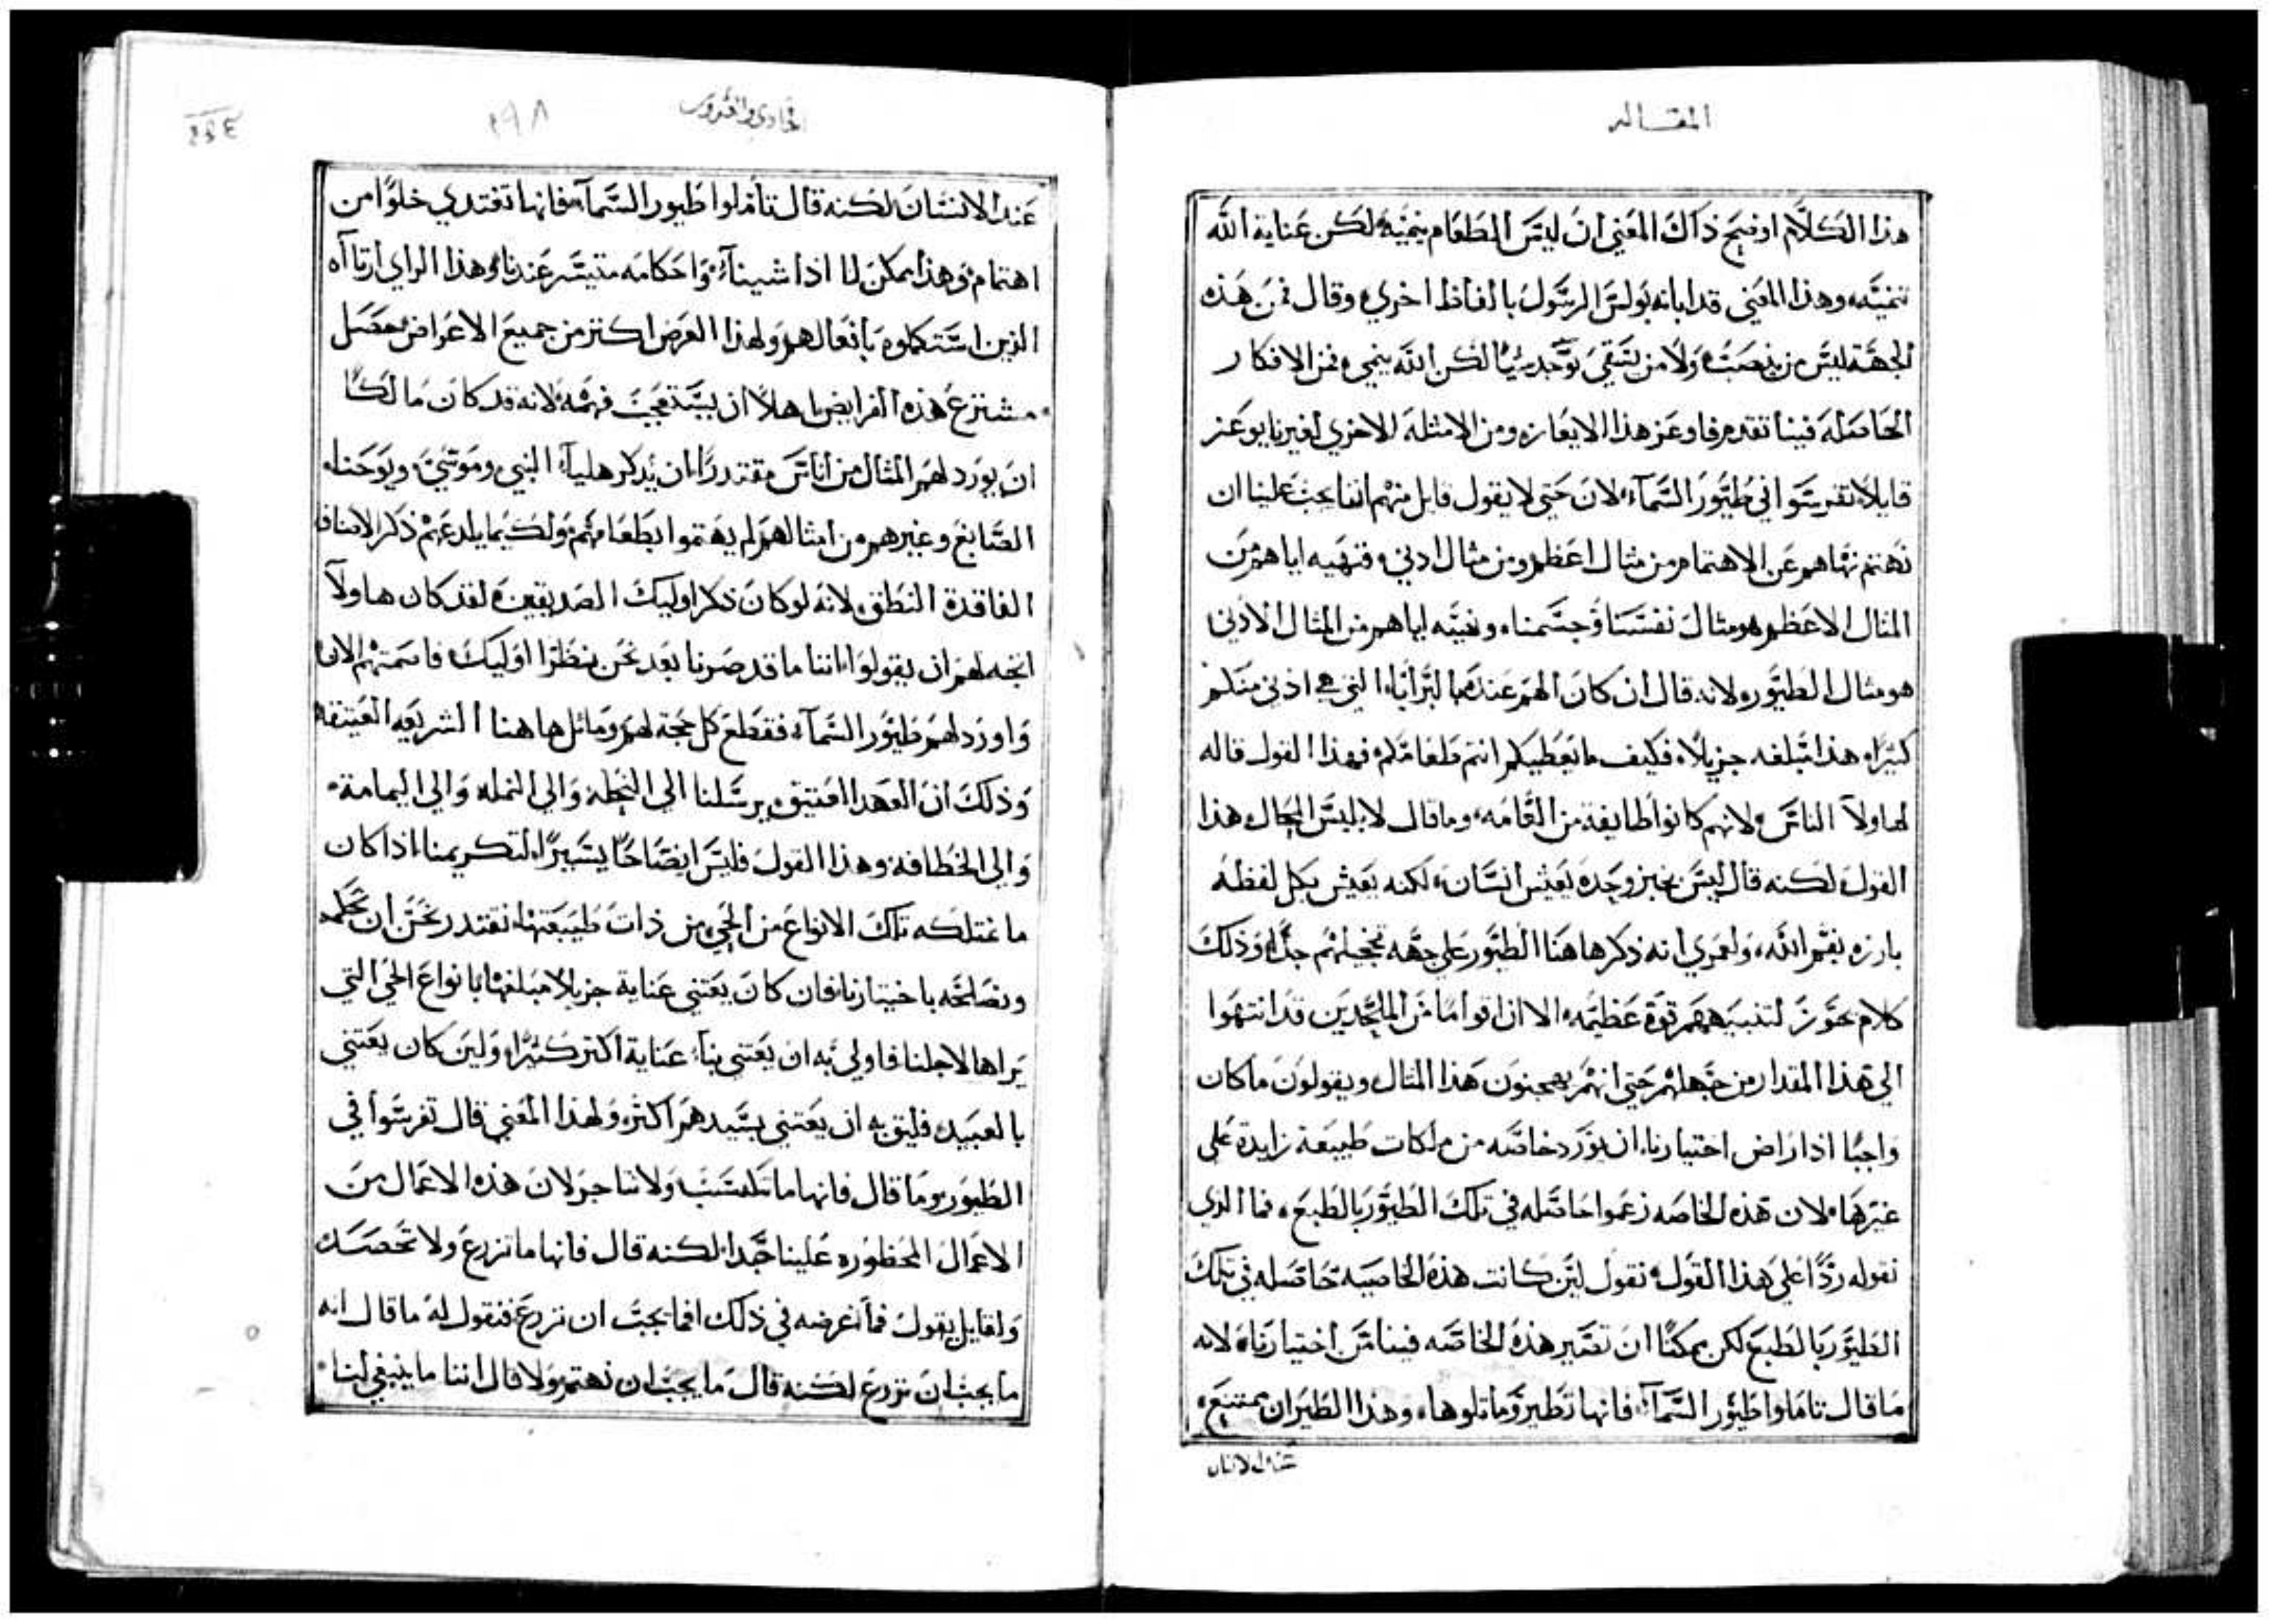 المقاله
هذا الكلام اوضح ذاك المعني ان ليس الطعام ينميه لكن عناية الله
تنميه وهذا المعني قد ابانه بولس الرسول بالفاظ اخري وقال فمن هذه
الجهة ليس من ينصب ولا من يسقي يوجد شيا لكن الله ينمي فمن الافكار
الحاصله فينا تقدم فاوعز هذا الايعاز ومن الامثلة الاخري لغيرنا يوعز
قايلا تفرسوا في طيور السماء لان حتي لا يقول قايل منهم اننا يجب علينا ان
نهتم نهاهم عن الاهتمام من مثال اعظم ومن مثال ادني فنهيه اياهم من
المثال الاعظم هو مثال نفسنا وجسمنا ونهيه اياهم من المثال الادني
هو مثال الطيور لانه قال ان كان الهم عنده بالبرايا التي هي ادني منكم
كثيرا هذا مبلغه جزيلا فكيف ما يعطيكم انتم طعامكم فهذا القول قاله
لهاولا الناس لانهم كانوا طايفة من العامه وما قال لابليس المحال هذا
القول لكنه قال ليس بخبز وحده يعيش انسان لكنه يعيش بكل لفظة
بارزه بفم الله ولعمري انه ذكر هاهنا الطيور علي جهه تخجيلهم جدا وذلك
كلام يحوز لتنبيههم قوة عظيمه الا ان اقواما من الملحدين قد انتهوا
الي هذا المقدار من جهلهم حتي انهم يهجنون هذا المثال ويقولون ما كان
واجبا اذا راض اختيارنا ان يورد خاصه من ملكات طبيعة زايدة علي
غيرها لان هذه الخاصه زعموا حاصله في تلك الطيور بالطبع فما الذي
نقوله ردا علي هذا القول نقول لين كانت هذه الخاصيه حاصله في تلك
الطيور بالطبع لكن يمكنا ان تصير هذه الخاصه فينا من اختيارنا لانه
ما قال تاملوا طيور السماء فانها تطير وماثلوها وهذا الطيران ممتنع
عند الانسان
الحادي والعشرون
٢٩٨
عند الانسان لكنه قال تاملوا طيور السماء فانها تغتدي خلوا من
اهتمام وهذا يمكن لنا اذا شينا واحكامه متيسر عندنا وهذا الراي ارتااه
الذين استكملوه بافعالهم ولهذا الغرض اكثر من جميع الاعراض حصل
مشترع هذه الفرايض اهلا ان يستعجب فهمه لانه قد كان مالكا
ان يورد لهم المثال من اناس مقتدرا ان يذكر هلياء النبي وموسي ويوحنا
الصابغ وغيرهم من امثالهم لم يهتموا بطعامهم ولكيما يلدعهم ذكر الاصناف
الفاقدة النطق لانه لو كان ذكر اوليك الصديقين لقد كان هاولا
اتجه لهم ان يقولوا اننا ما قد صرنا بعد نحن بنظرا اوليك فاصمتهم الان
واورد لهم طيور السماء فقطع كل حجة لهم وماثل هاهنا الشريعه العتيقة
وذلك ان العهد العتيق يرسلنا الي النحلة والي النمله والي اليمامة
والي الخطافة وهذا القول فليس ايضاحا يسيرا لتكريمنا اذا كان
ما تمتلكه تلك الانواع من الحي من ذات طبيعتها نقتدر نحن ان نحكمه
ونصلحه باختيارنا فان كان يعتني عناية جزيلا مبلغها بانواع الحي التي
براها لاجلنا فاولي به ان يعتني بنا عناية اكثر كثيرا ولين كان يعتني
بالعبيد فليق به ان يعتني بسيدهم اكثر ولهذا المعني قال تفرسوا في
الطيور وما قال فانها ما تكتسب ولا تتاجر لان هذه الاعمال من
الاعمال المحظوره علينا جدا لكنه قال فانها ما تزرع ولا تحصد
ولقايل يقول فما غرضه في ذلك افما يجب ان نزرع فنقول له ما قال انه
ما يجب ان نزرع لكنه قال ما يجب ان نهتم ولا قال اننا ما ينبغي لنا